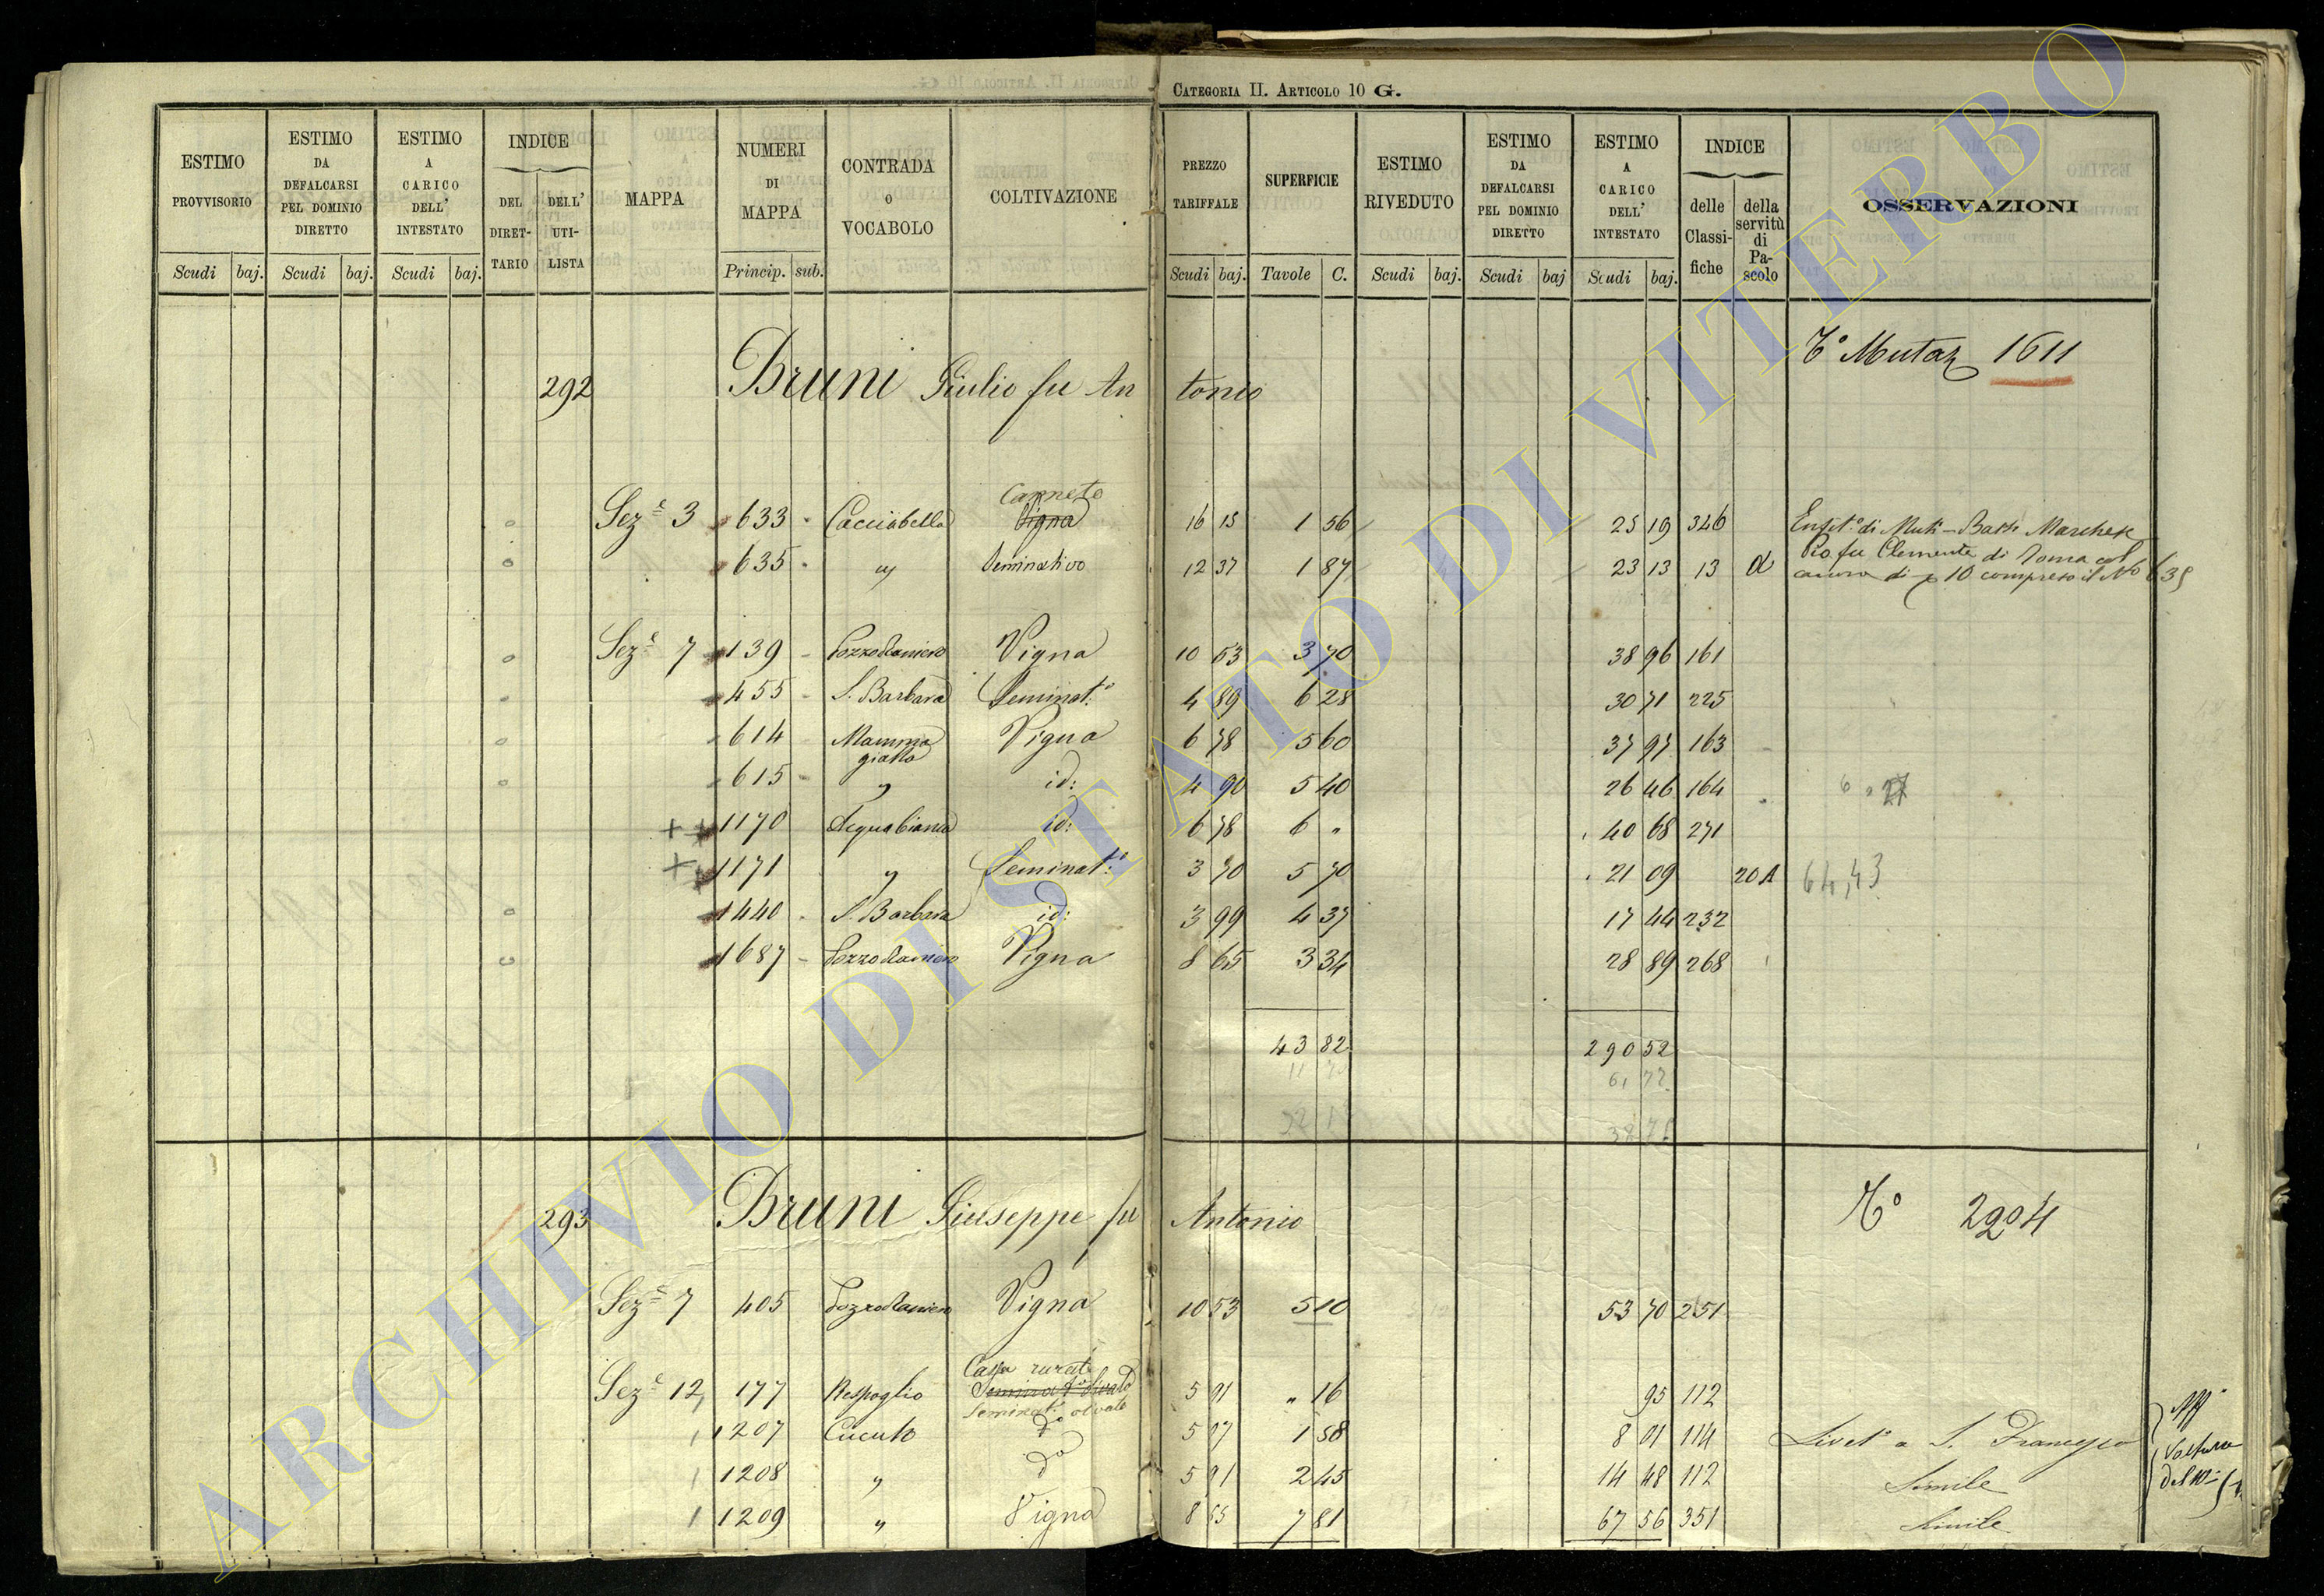 CATEGORIA II. ARTICOLO 10 G.
ESTIMO PROVVISORIO Scudi baj.
ESTIMO DA DEFALCARSI PEL DOMINIO DIRETTO Scudi baj.
ESTIMO A CARICO DELL' INTESTATO Scudi baj.
INDICE DEL DIRET-TARIO DELL' UTI-LISTA
MAPPA
NUMERI DI MAPPA Princip. sub.
CONTRADA o VOCABOLO
COLTIVAZIONE
PREZZO TARIFFALE Scudi baj.
SUPERFICIE Tavole C.
ESTIMO RIVEDUTO Scudi baj.
ESTIMO DA DEFALCARSI PEL DOMINIO DIRETTO Scudi baj
ESTIMO A CARICO DELL' INTESTATO Scudi baj.
INDICE delle Classi-fiche della servitù di Pa-scolo
OSSERVAZIONI
Tº Mutaz 1611
292 Bruni Giulio fu Antonio
Canneto
Sezᵉ 3 633 Cacciabella Vigna 16 15 1 56 25 19 346 Enfitº di Muti-Bassi Marchese
Pio fu Clemente di Roma col
635 " Seminativo 12 37 1 87 23 13 13 a canone di 10 compreso il No 635
Sezᵉ 7 139 Pozzo Raniero Vigna 10 53 3 70 38 96 161
455 S. Barbara Seminatº 4 89 6 28 30 71 225
614 Mammagialla Vigna 6 78 5 60 37 97 163
615 " id: 4 90 5 40 26 46 164
++ 1170 Acquabianca id: 6 78 6 " 40 68 271
++ 1171 " Seminatº 3 70 5 70 21 09 20A 64,43
1440 S. Barbara id: 3 99 4 37 17 44 232
1687 Pozzo Raniero Vigna 8 65 3 34 28 89 268
43 82 290 52
293 Bruni Giuseppe fu Antonio Tº 2904
Sezᵉ 7 405 Pozzo Raniero Vigna 10 53 5 10 53 70 251
Casa rurale
Sezᵉ 12 177 Respoglio Seminatº olivato 5 91 " 16 95 112
Seminatº olivato
1207 Cucuto dº 5 07 1 58 8 01 114 Livetº a S. Francesco
1208 " dº 5 91 2 45 14 48 112 Simile
1209 " Vigna 8 65 7 81 67 56 351 Simile
ARCHIVIO DI STATO DI VITERBO